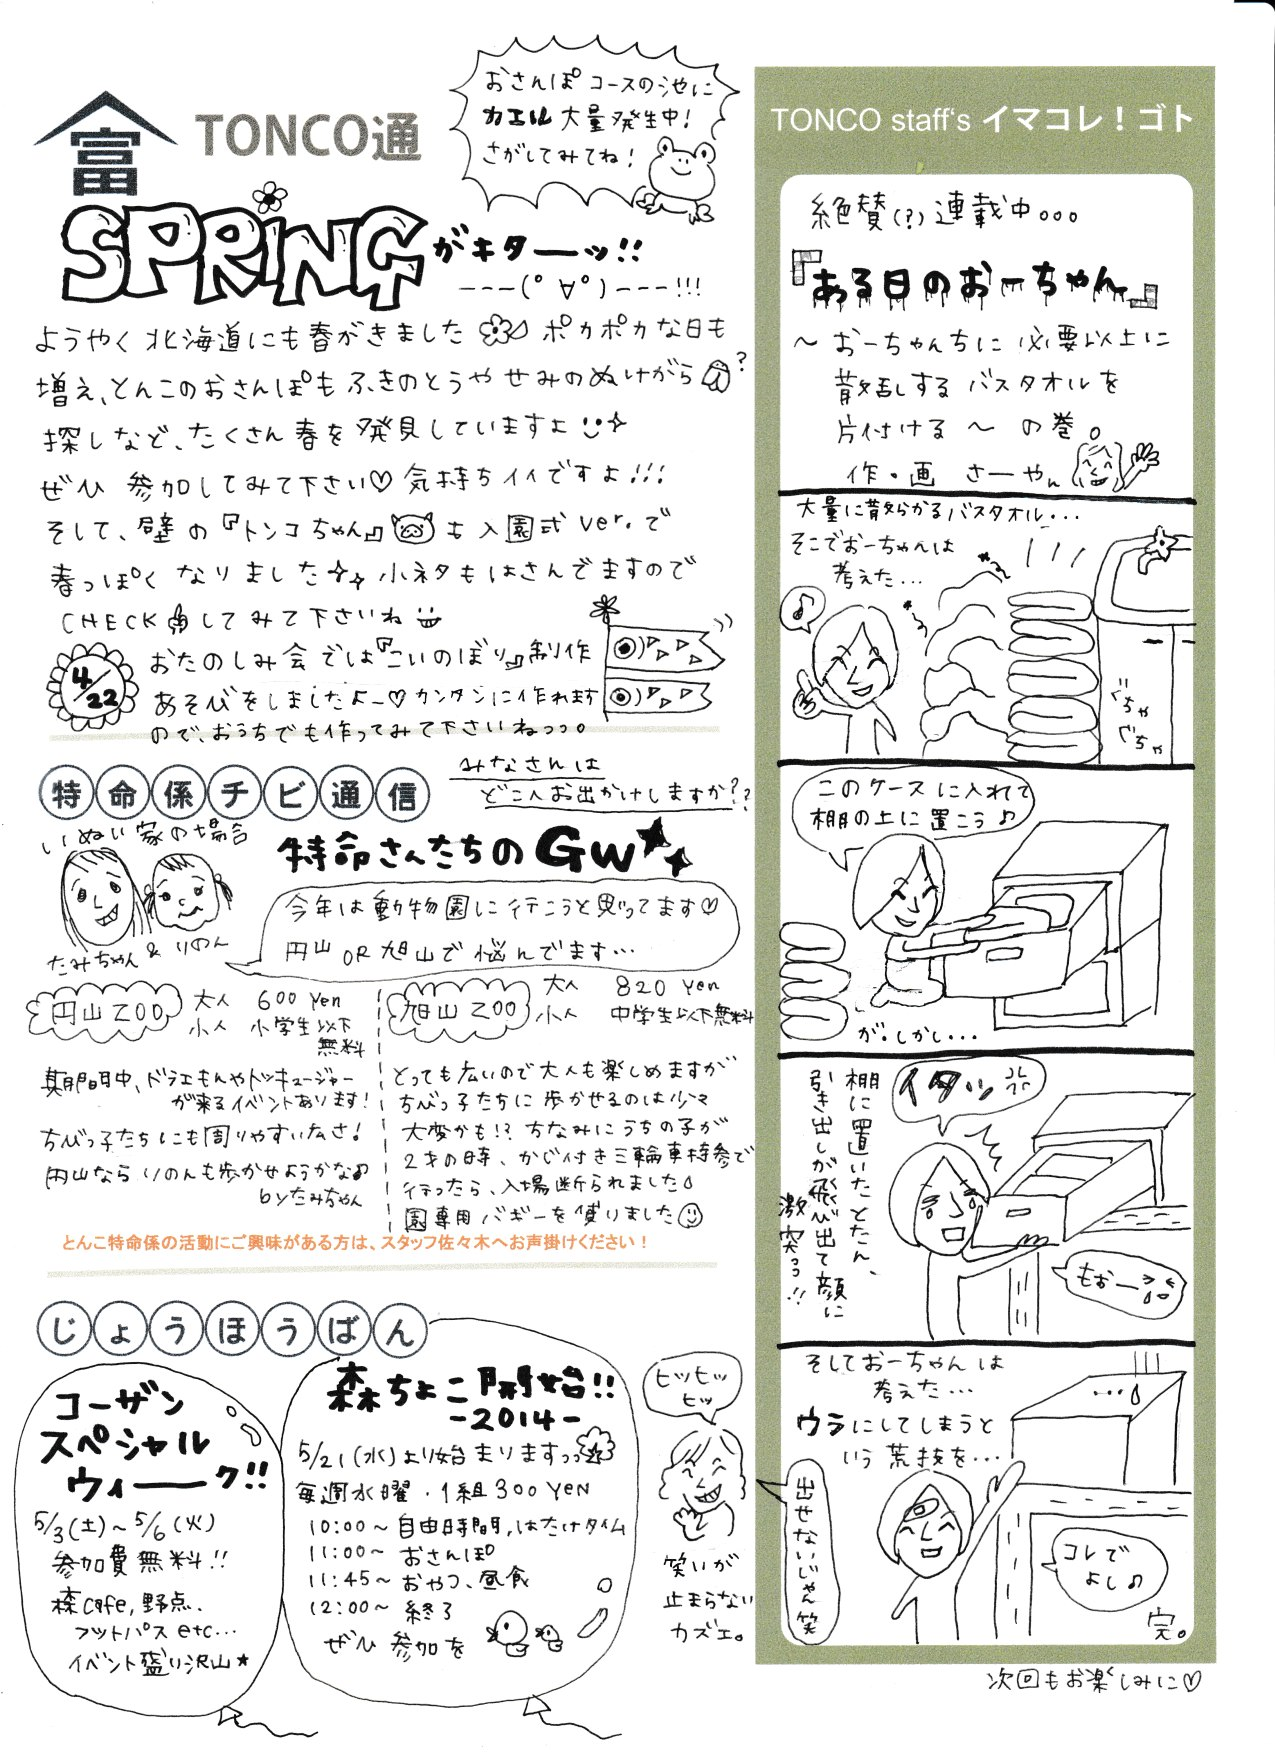 おさんぽコースの池に
カエル大量発生中!
さがしてみてね!
富
TONCO通
SPRINGがキターーッ!!
---(ﾟ∀ﾟ)---!!!
ようやく北海道にも春がきました ポカポカな日も
増え、とんこのおさんぽもふきのとうやせみのぬけがら?
探しなど、たくさん春を発見していますよ
ぜひ参加してみて下さい♡気持ちイイですよ!!!
そして、壁の『トンコちゃん』も入園式ver.で
春っぽくなりました☆☆小ネタもはさんでますので
CHECKしてみて下さいね
4/22
おたのしみ会では『こいのぼり』制作
あそびをしましたよー♡カンタンに作れます
ので、おうちでも作ってみて下さいねっっ。
特命係チビ通信
みなさんは
どこへお出かけしますか??
いぬい家の場合
特命さんたちのGW
たみちゃん&りのん
今年は動物園に行こうと思ってます♡
円山OR旭山で悩んでます…
円山ZOO
大人 600yen
小人 小学生以下
無料
期間中、ドラえもんやトッキュージャー
が来るイベントあります!
ちびっ子たちにも周りやすい広さ!
円山ならりのんも歩かせようかな♪
byたみちゃん
旭山ZOO
大人 820yen
小人 中学生以下無料
とっても広いので大人も楽しめますが
ちびっ子たちに歩かせるのは少々
大変かも!?ちなみにうちの子が
2才の時、かじ付き三輪車持参で
行ったら、入場断られました
園専用バギーを借りました
とんこ特命係の活動にご興味がある方は、スタッフ佐々木へお声掛けください!
じょうほうばん
コーザン
スペシャル
ウィーーク!!
5/3(土)~5/6(火)
参加費無料!!
森cafe,野点、
フットパスetc…
イベント盛り沢山★
森ちょこ開始!!
-2014-
5/21(水)より始まりますっっ
毎週水曜・1組300yen
10:00~自由時間,はたけタイム
11:00~おさんぽ
11:45~おやつ、昼食
12:00~終了
ぜひ参加を
ヒッヒッ
ヒッ
笑いが
止まらない
カズエ。
TONCO staff's イマコレ!ゴト
絶賛(?)連載中。。。
『ある日のおーちゃん』
~おーちゃんちに必要以上に
散乱するバスタオルを
片付ける~の巻。
作・画 さーやん
大量に散らかるバスタオル…
そこでおーちゃんは
考えた…
♪
ぐちゃ
ぐちゃ
このケースに入れて
棚の上に置こう♪
が、しかし…
イタッ
棚に置いたとたん、
引き出しが飛び出て顔に
激突っ!!
もぉー
そしておーちゃんは
考えた…
ウラにしてしまうと
いう荒技を…
出せないじゃん笑
コレで
よし♪
完。
次回もお楽しみに♡